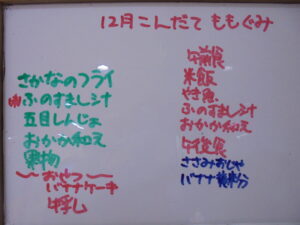 12月こんだて ももぐみ
さかなのフライ
ふのすまし汁
五目しんじょ
おかか和え
果物
〜おやつ〜
バナナケーキ
牛乳
午前食
米飯
やき魚
ふのすまし汁
おかか和え
午後食
ささみおじや
バナナ